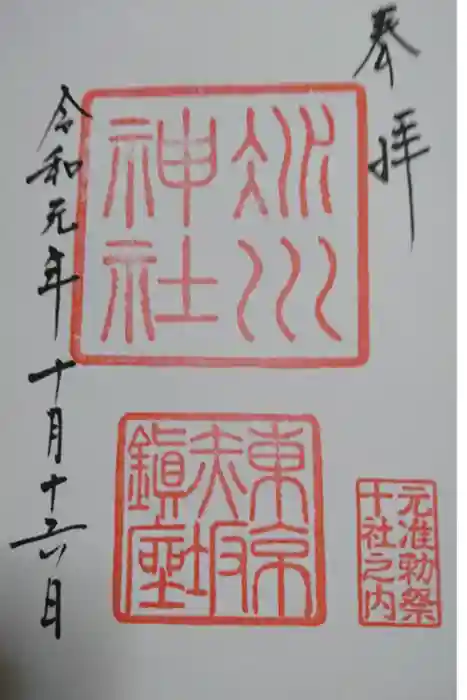 奉拝
冰川
神社
東京
赤坂
鎭座
元准勅祭
十社之内
令和元年十月十六日